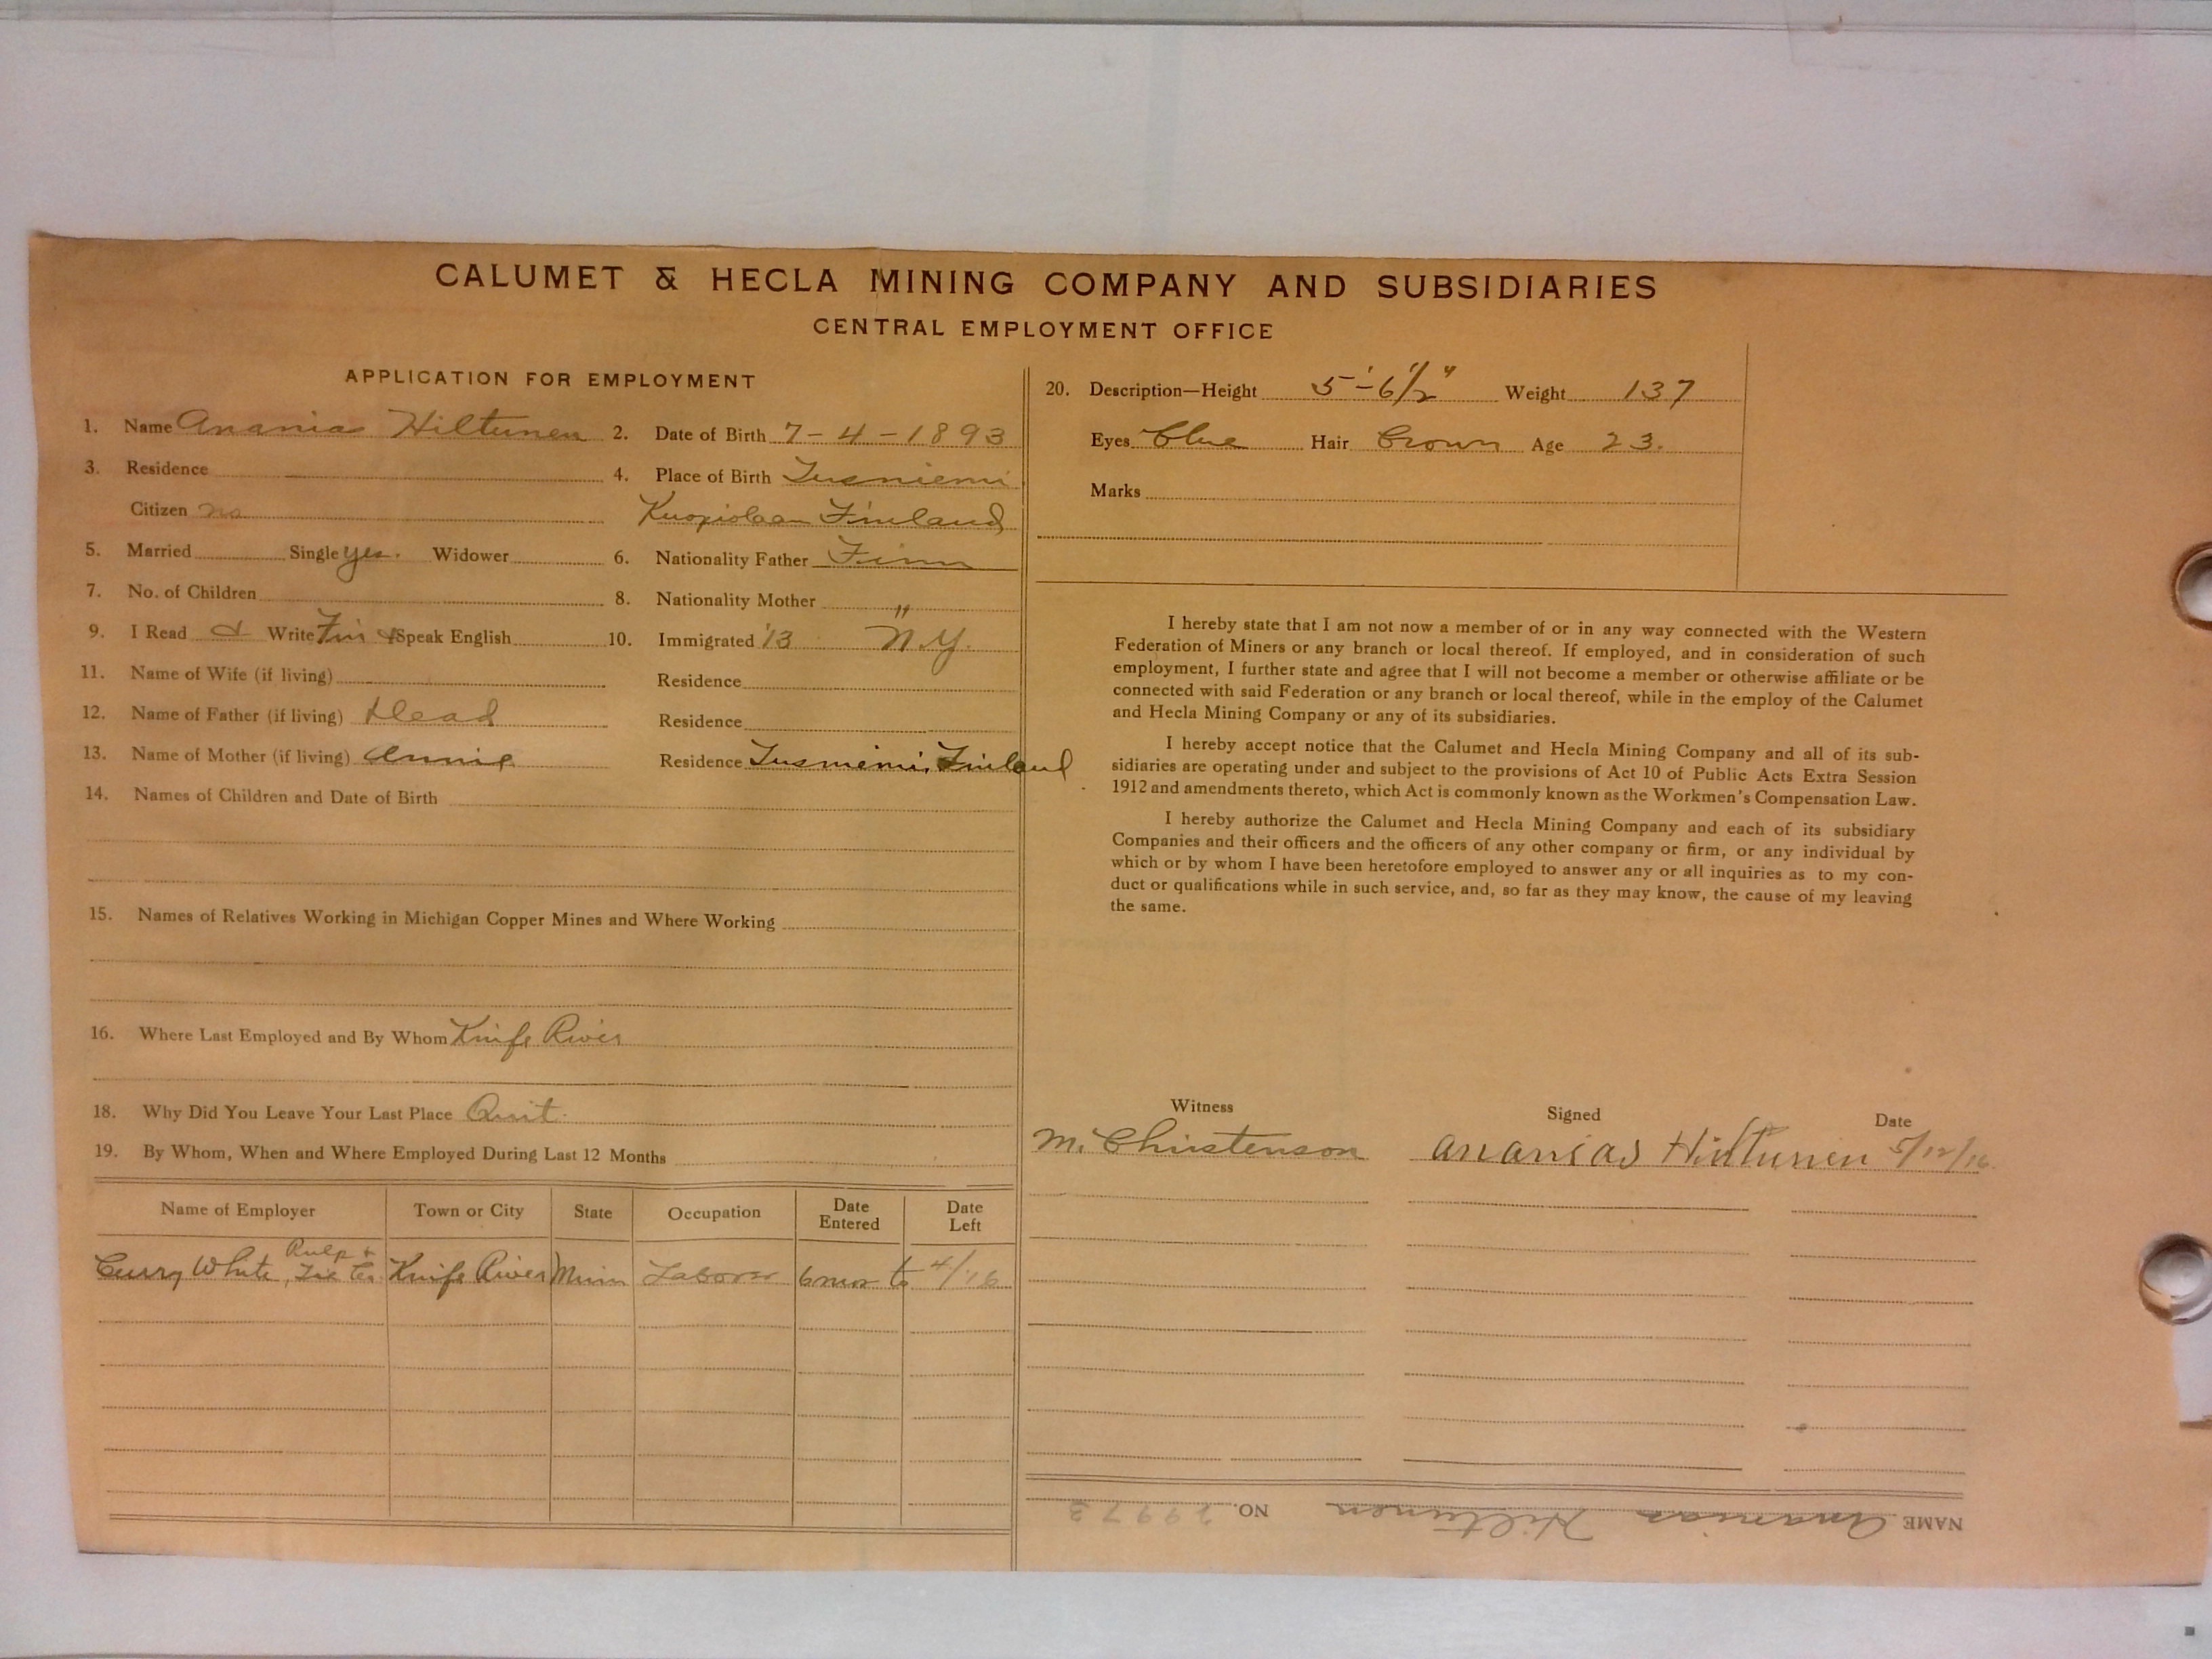 CALUMET & HECLA MINING COMPANY AND SUBSIDIARIES
CENTRAL EMPLOYMENT OFFICE
APPLICATION FOR EMPLOYMENT
1. Name Ananias Hiltunen 2. Date of Birth 7-4-1893
3. Residence 4. Place of Birth Tusniemi
Citizen no Kuopiolaan Finland
5. Married Single yes. Widower 6. Nationality Father Finn
7. No. of Children 8. Nationality Mother "
9. I Read & Write Fin & Speak English 10. Immigrated '13 N.Y.
11. Name of Wife (if living) Residence
12. Name of Father (if living) Dead Residence
13. Name of Mother (if living) Annie Residence Tusniemi, Finland
14. Names of Children and Date of Birth
15. Names of Relatives Working in Michigan Copper Mines and Where Working
16. Where Last Employed and By Whom Knife River
18. Why Did You Leave Your Last Place Quit.
19. By Whom, When and Where Employed During Last 12 Months
Name of Employer Town or City State Occupation Date Entered Date Left
Curry White, Pulp & Tie Co. Knife River Minn Laborer 6 mos to 4/'16
20. Description—Height 5'-6 1/2" Weight 137
Eyes Blue Hair Brown Age 23.
Marks
I hereby state that I am not now a member of or in any way connected with the Western
Federation of Miners or any branch or local thereof. If employed, and in consideration of such
employment, I further state and agree that I will not become a member or otherwise affiliate or be
connected with said Federation or any branch or local thereof, while in the employ of the Calumet
and Hecla Mining Company or any of its subsidiaries.
I hereby accept notice that the Calumet and Hecla Mining Company and all of its sub-
sidiaries are operating under and subject to the provisions of Act 10 of Public Acts Extra Session
1912 and amendments thereto, which Act is commonly known as the Workmen's Compensation Law.
I hereby authorize the Calumet and Hecla Mining Company and each of its subsidiary
Companies and their officers and the officers of any other company or firm, or any individual by
which or by whom I have been heretofore employed to answer any or all inquiries as to my con-
duct or qualifications while in such service, and, so far as they may know, the cause of my leaving
the same.
Witness Signed Date
M. Christenson Ananias Hiltunen 5/12/16.
NAME Ananias Hiltunen NO.